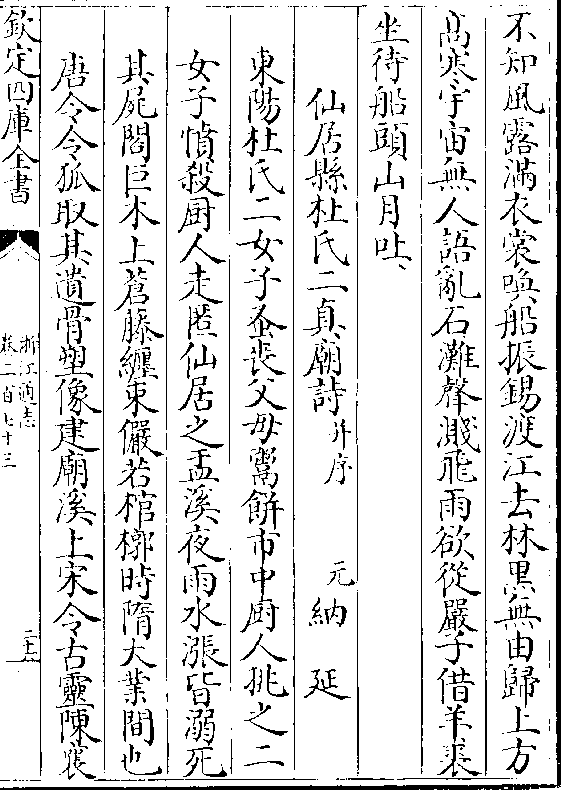 不知風露滿衣裳喚船振錫渡江去林黒無由歸上方
髙寒宇宙無人語亂石灘聲濺飛雨欲從嚴子借羊裘
坐待船頭山月吐
仙居縣杜氏二真廟詩并序 元納延
東陽杜氏二女子蚤喪父母鬻餅市中厨人挑之二
女子憤殺厨人走匿仙居之孟溪夜雨水漲皆溺死
其屍閣巨木上蒼藤纏束儼若棺槨時隋大業間也
唐令令狐取其遺骨塑像建廟溪上宋令古靈陳襄
欽定四庫全書
浙江通志
卷二百七十三